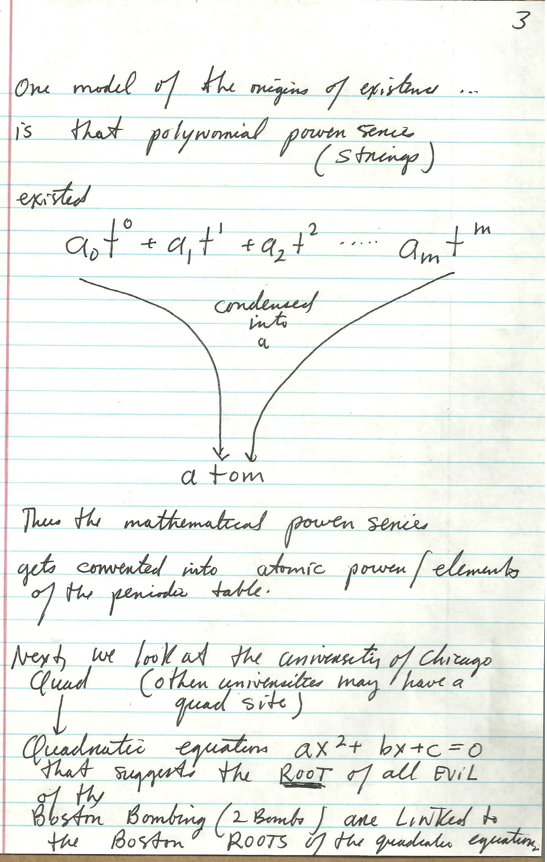 3
One model of the origins of existence ...
is that polynomial power series
(strings)
existed
a₀t⁰ + a₁t¹ + a₂t² ..... aₘtᵐ
condensed
into
a
atom
Thus the mathematical power series
gets converted into atomic power / elements
of the periodic table.
Next, we look at the university of Chicago
Quad (other universities may have a
quad site)
Quadratic equation ax² + bx + c = 0
that suggests the ROOT of all EVIL
of the
Boston Bombing (2 Bombs) are LINKED to
the Boston ROOTS of the quadratic equation